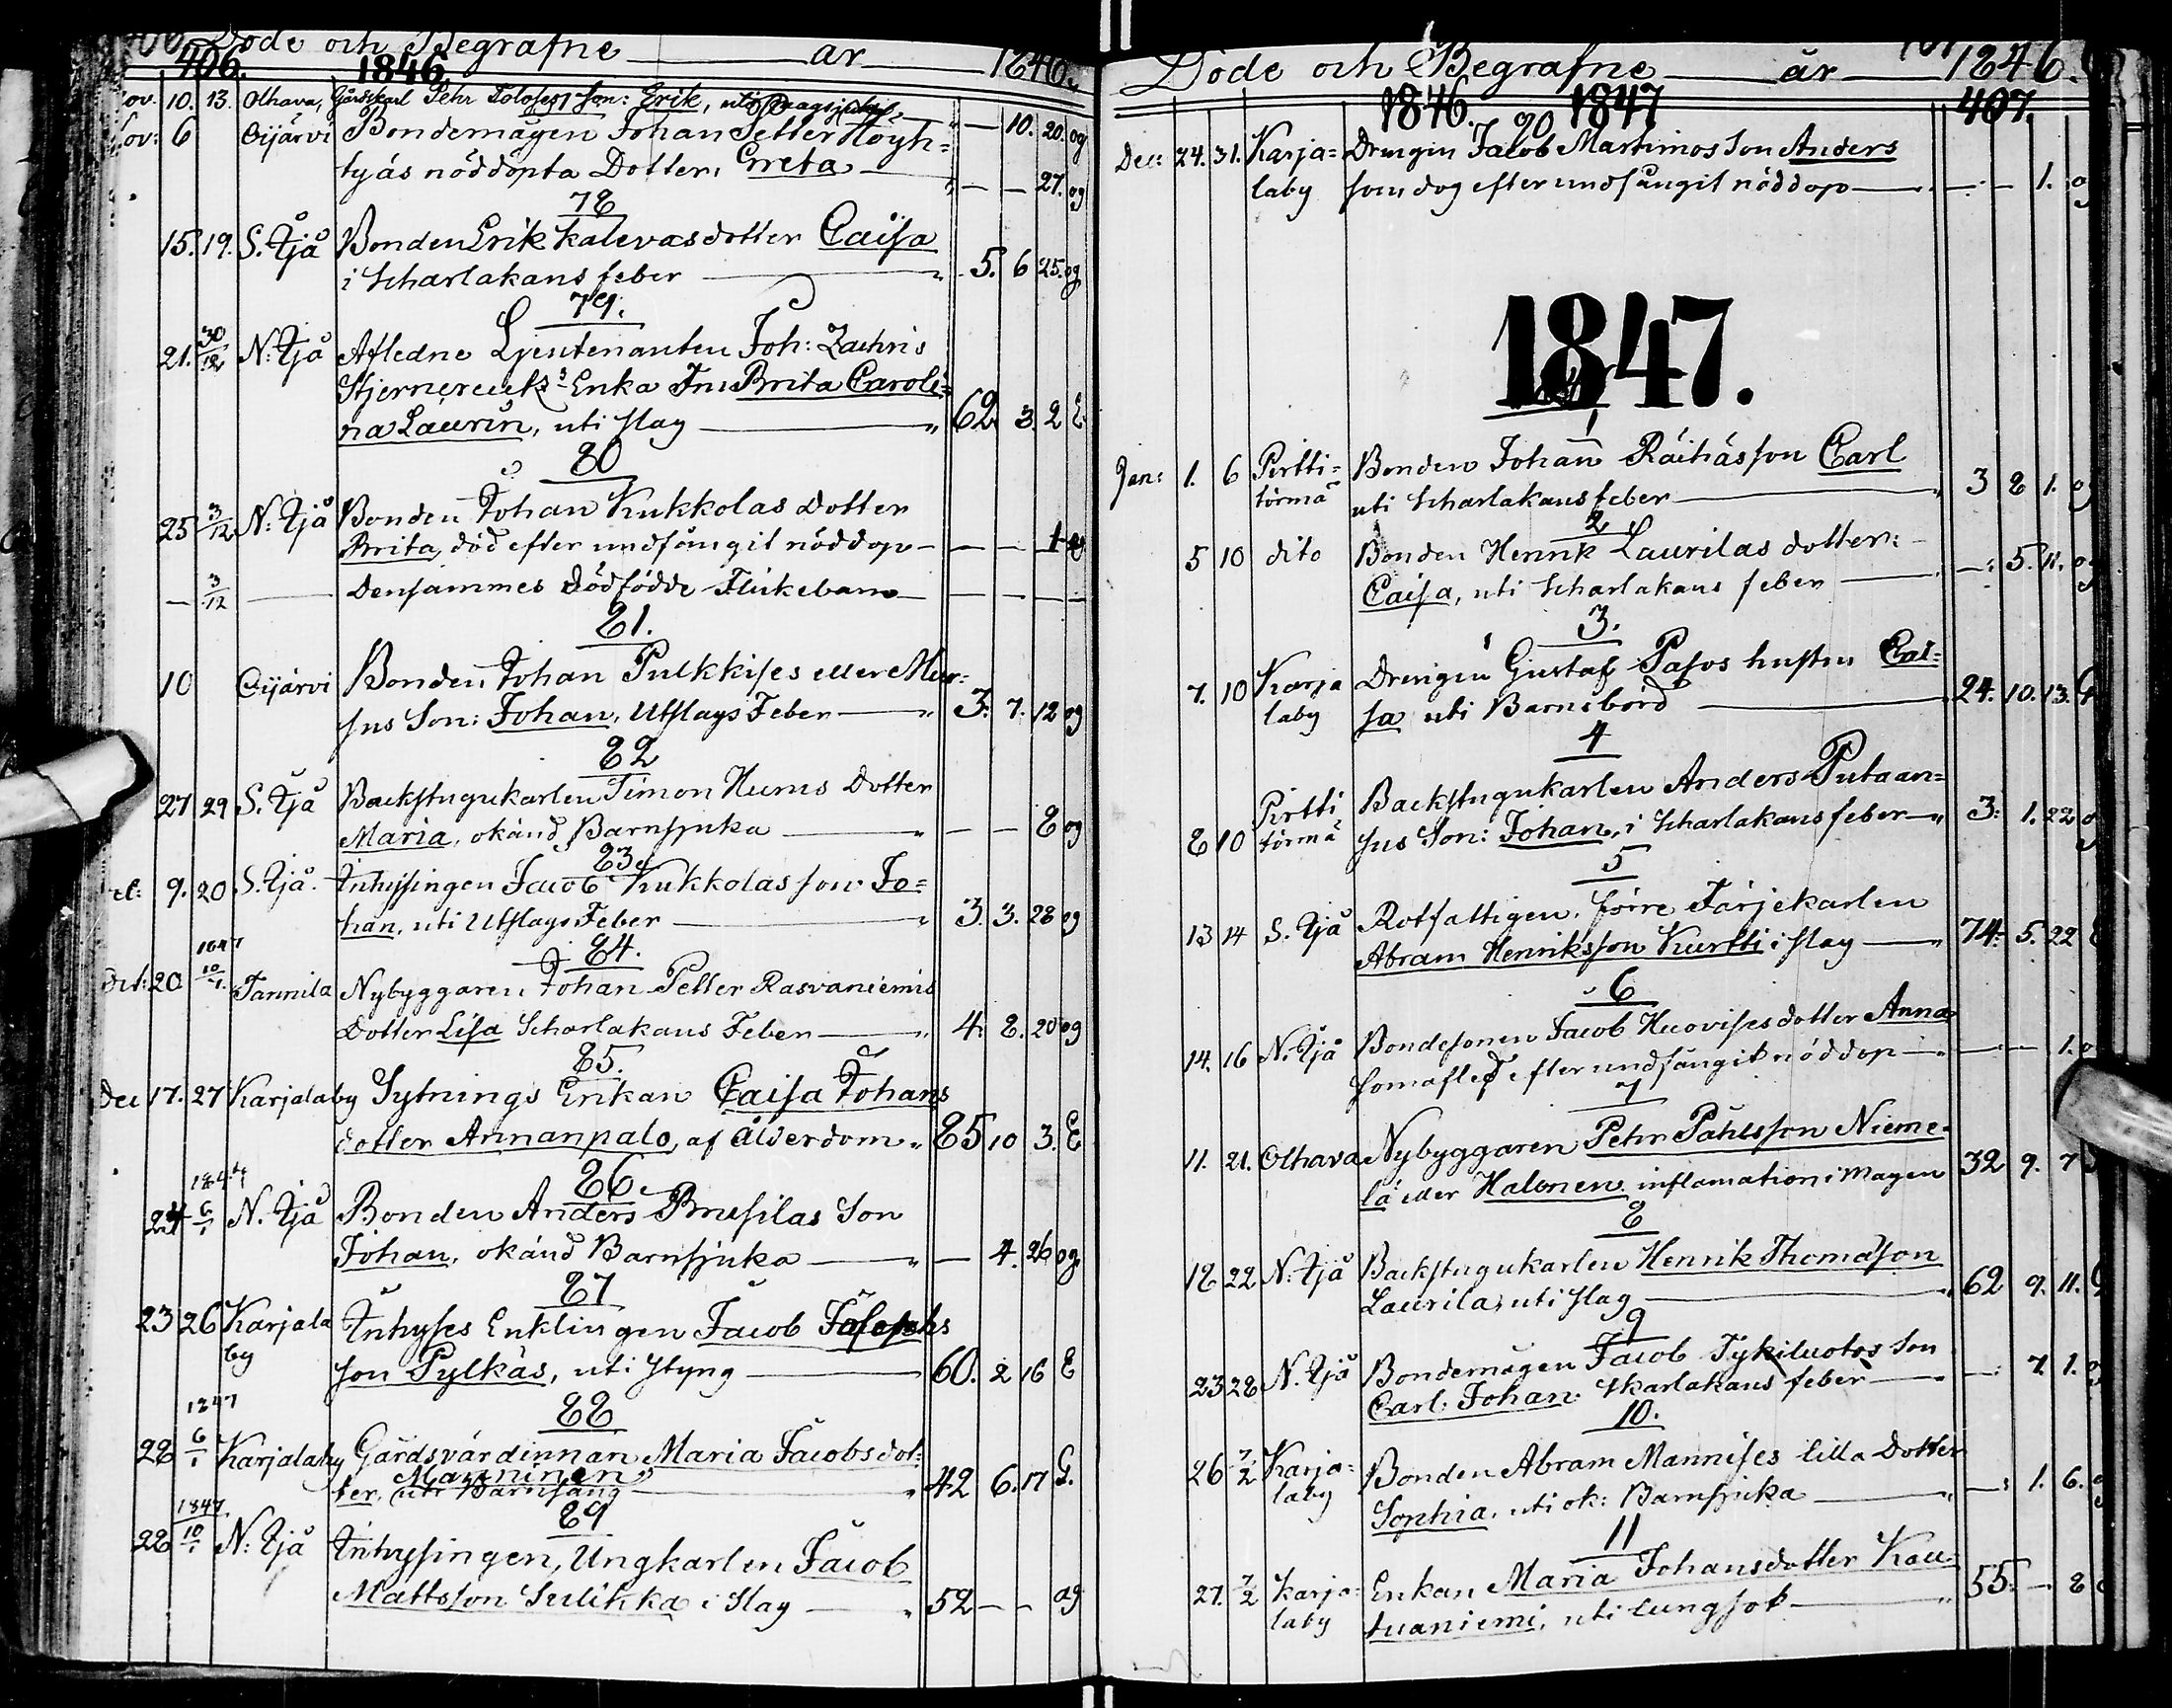 406 Döde och Begrafne år 1846.
406. 1846.
ov. 10. 13. Olhava, Gårdskarl Pehr Tolosess son: Erik, uti Slagsjuka — 10. 20. og
ov: 6 Oijärvi Bondemågen Johan Petter Höyh=
tyäs nöddöpta Dotter, Greta — — 27. og
78
15. 19. S. Ijå Bonden Erik Kalevas dotter Caisa
i Scharlakans feber 5. 6 25. og
79.
21. 30/12 N: Ijå Afledne Lieutenanten Joh: Zachris
Stjernereuts Enka Fru Brita Caroli=
na Laurin, uti slag 62. 3. 2 E
80
25 3/12 N: Ijå Bonden Johan Kukkolas Dotter
Brita, död efter undfångit nöddop — — 1 og
— 3/12 — Densammes dödfödde Flickebarn — — —
81.
10 Oijärvi Bonden Johan Pulkkises eller Mur=
sus Son: Johan, Utslags Feber 3. 7. 12 og
82
27 29 S. Ijå Backstugukarlen Simon Hurus Dotter
Maria, okänd Barnsjuka — — 8 og
83.
9. 20 S. Ijå. Inhysingen Jacob Kukkolas son Jo=
han, uti Utslags Feber 3. 3. 28 og
84.
1847
Oct: 20 10/1. Tannila Nybyggaren Johan Petter Rasvaniemis
Dotter Lisa Scharlakans Feber 4. 8. 20 og
85.
Dec 17. 27 Karjalaby Sytnings Enkan Caisa Johans
dotter Annanpalo, af ålderdom 85 10 3. E
86
1847
24 6/1 N. Ijå Bonden Anders Brusilas Son
Johan, okänd Barnsjuka — 4. 26 og
87
23 26 Karjala Inhyses Enklingen Jacob Josephs
by son Pylkäs, uti styng 60. 2 16 E
88
1847
28 6/1 Karjalaby Gårdsvärdinnan Maria Jacobsdot=
Manninen
ter, uti Barnsäng 42 6. 17 G.
89
1847.
28 10/1 N: Ijå Inhysingen, Ungkarlen Jacob
Mattsson Sulikka i Slag 52 — — og
Döde och Begrafne år 1846.
1846. 1847 407.
90
Dec: 24. 31. Karja= Drengen Jacob Martimos Son Anders
laby som dog efter undfångit nöddop — — 1. og
1847.
1
Jan: 1. 6 Pirtti= Bonden Johan Räihäs son Carl
törmä uti Scharlakansfeber 3 8 1. og
2
5 10 dito Bonden Henrik Laurilas dotter:
Caisa, uti Scharlakans feber — 5. 11. og
3.
7. 10 Karja Drengen Gustaf Pasos hustru Cai=
laby sa uti Barnsbörd 24. 10. 13. G
4
Pirtti Backstugukarlen Anders Putaan=
8 10 törmä sus Son: Johan, i Scharlakansfeber 3. 1. 22 og
5
13 14 S. Ijå Rotfattigen, förre Färjekarlen
Abram Henriksson Kurtti i slag 74. 5. 22
6
14. 16 N. Ijå Bondesonen Jacob Huovises dotter Anna
som afled efter undfångit nöddop — — 1.
7
11. 21. Olhava Nybyggaren Pehr Påhlsson Nieme=
lä eller Halonen inflamation i Magen 32 9. 7
8
18 22 N: Ijå Backstugukarlen Henrik Thomasson
Laurila, uti slag 62 9. 11. G
9
23 28 N. Ijå Bondemågen Jacob Tykiluotos Son
Carl Johan. Skarlakans feber — 7. 1. og
10.
26 7/2 Karja= Bonden Abram Mannises lilla Dotter
laby Sophia, uti ok: Barnsjuka — 1. 6.
11
27. 7/2 Karja= Enkan Maria Johansdotter Kau=
laby tuaniemi, uti lungsot 55. — 8